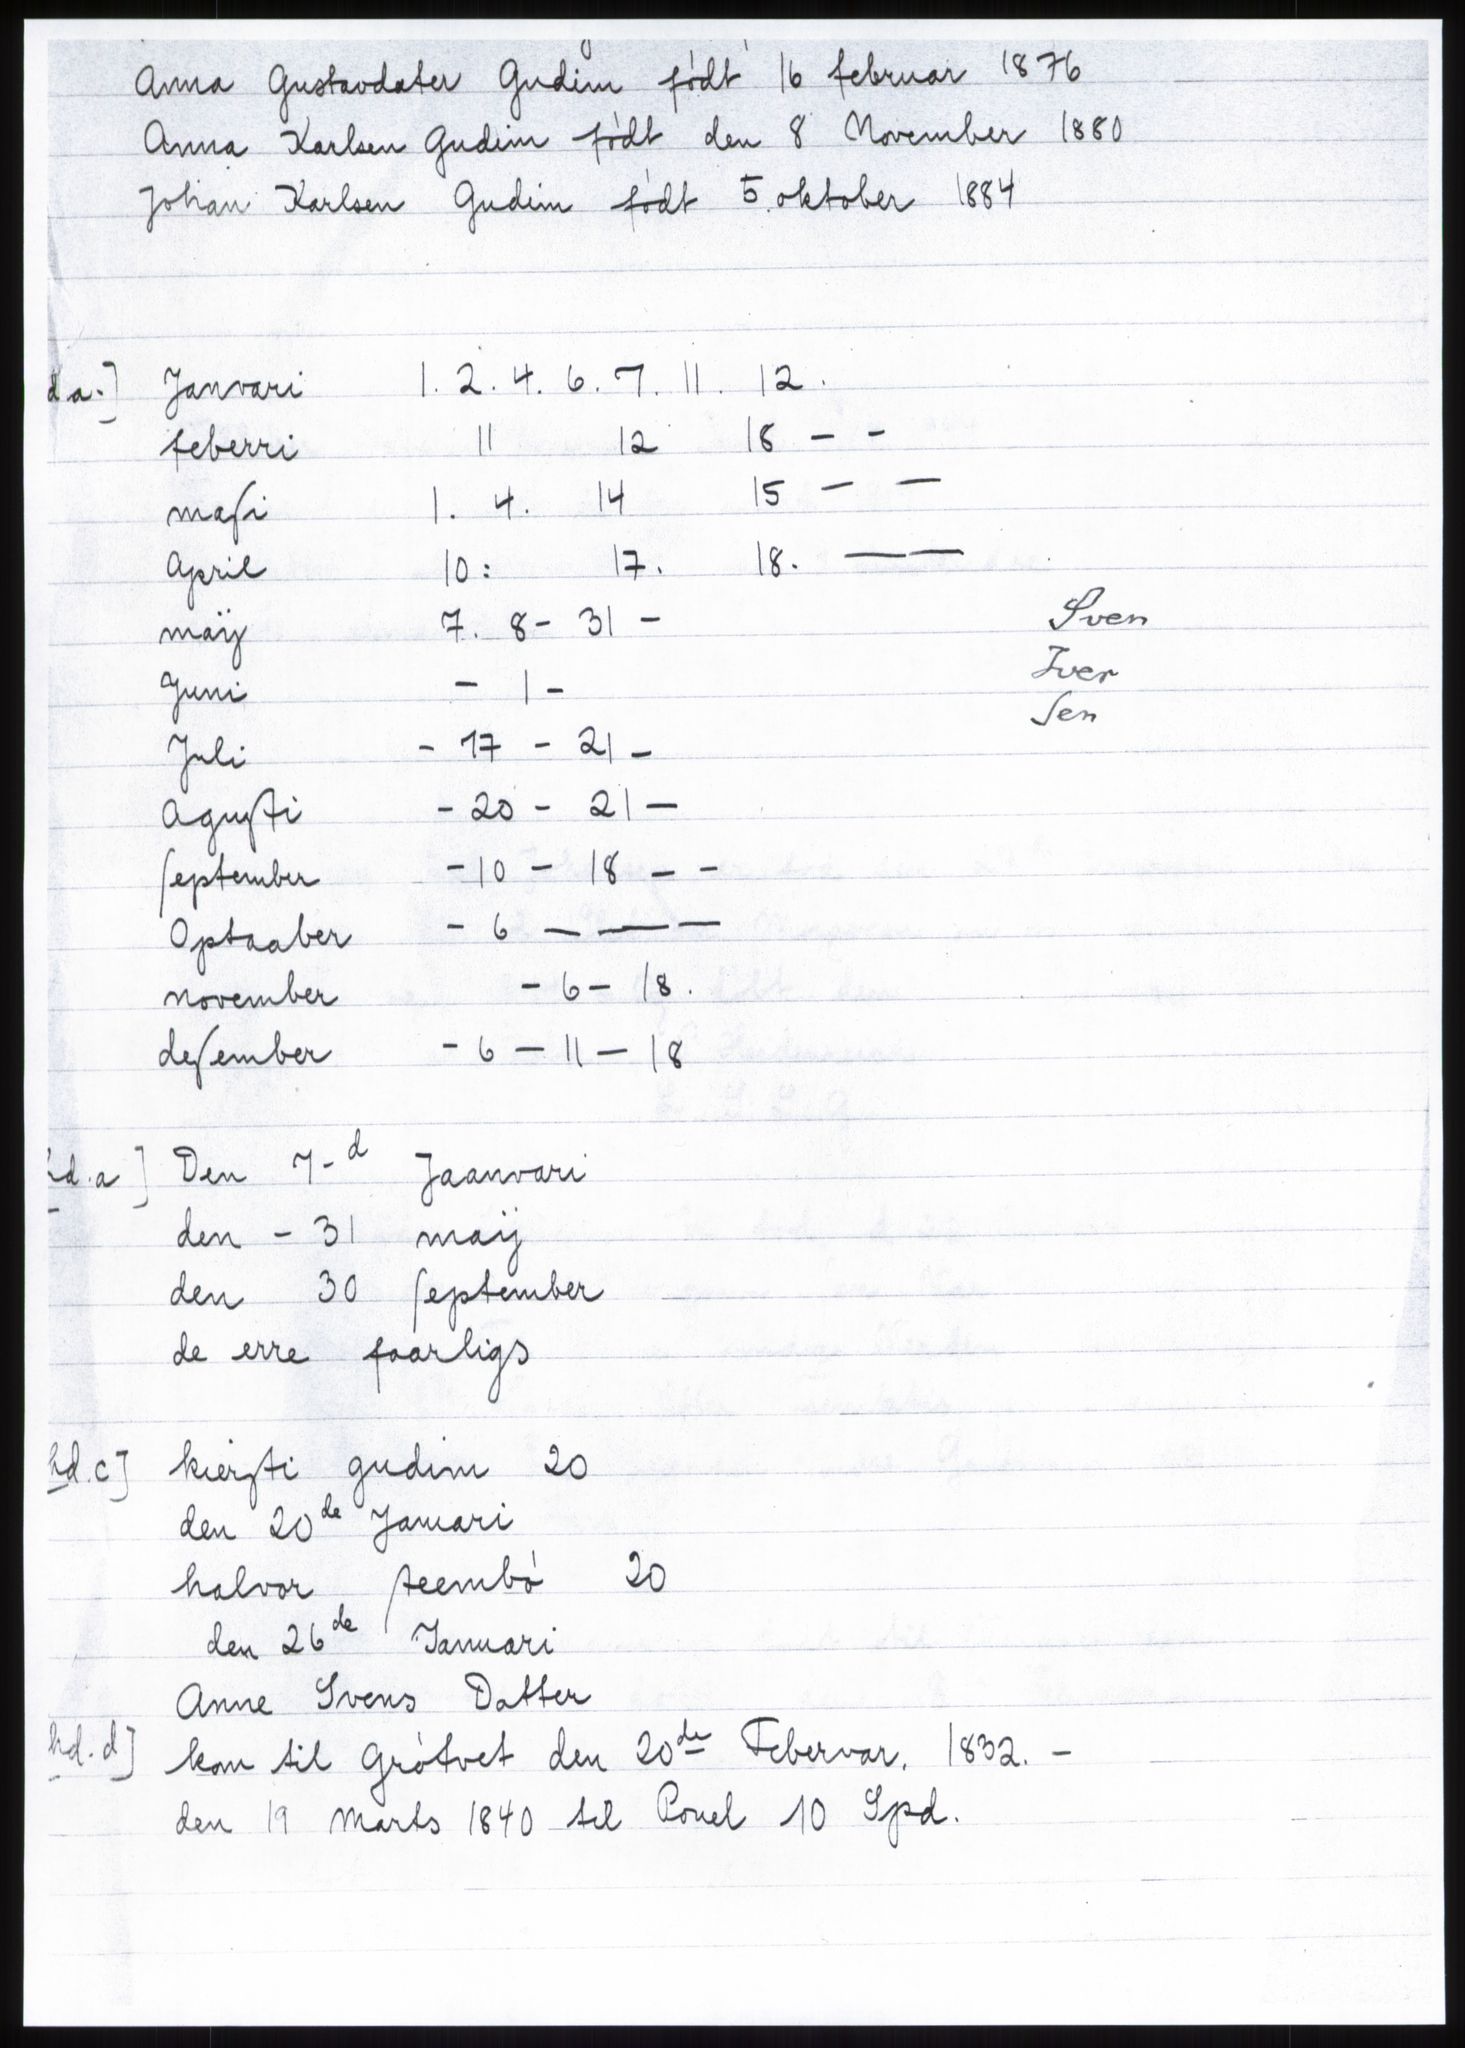 Anna Gustavdater Gudim født 16 februar 1876
Anna Karlsen Gudim født den 8 November 1880
Johan Karlsen Gudim født 5. oktober 1884
d.a.] Janvari 1. 2. 4. 6. 7. 11. 12.
feberri 11 12 18 — -
maſi 1. 4. 14 15 — —
April 10: 17. 18. — —
maÿ 7. 8 - 31 -
Sven
Juni - 1 -
Iver
Sen
Juli - 17 - 21 -
Aguſti - 20 - 21 —
ſeptember - 10 - 18 — -
Optaaber - 6 — — —
november - 6 - 18.
deſember - 6 — 11 — 18
hd.a] Den 7-d Jaanvari
den - 31 maÿ
den 30 ſeptember
de erre faarligs
hd.c] kierſti gudim 20
den 20de Januari
halvor ſteembø 20
den 26de Januari
Anne Svens Datter
hd.d] kom til Grøtvet den 20de Febervar. 1832. -
den 19 Marts 1840 til Povel 10 Spd.